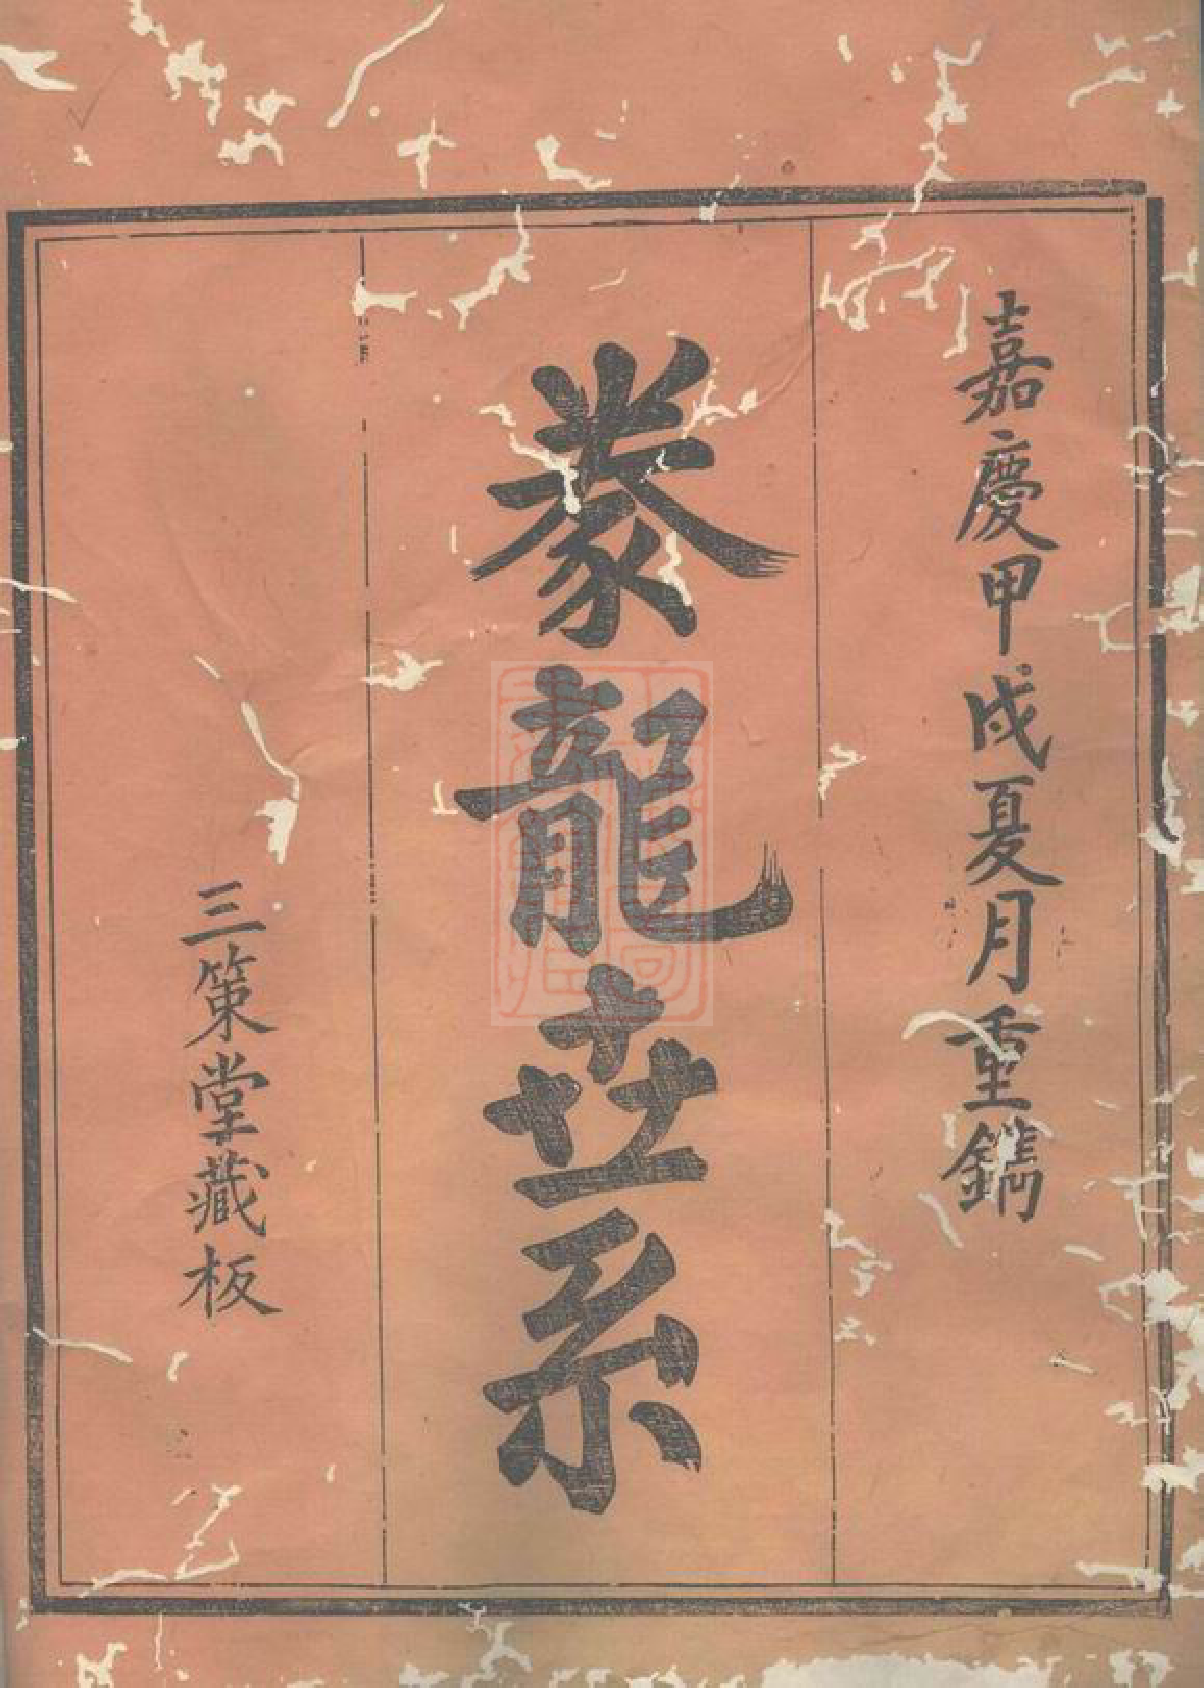 嘉慶甲戌夏月重鐫
豢龍世系
三策堂藏板